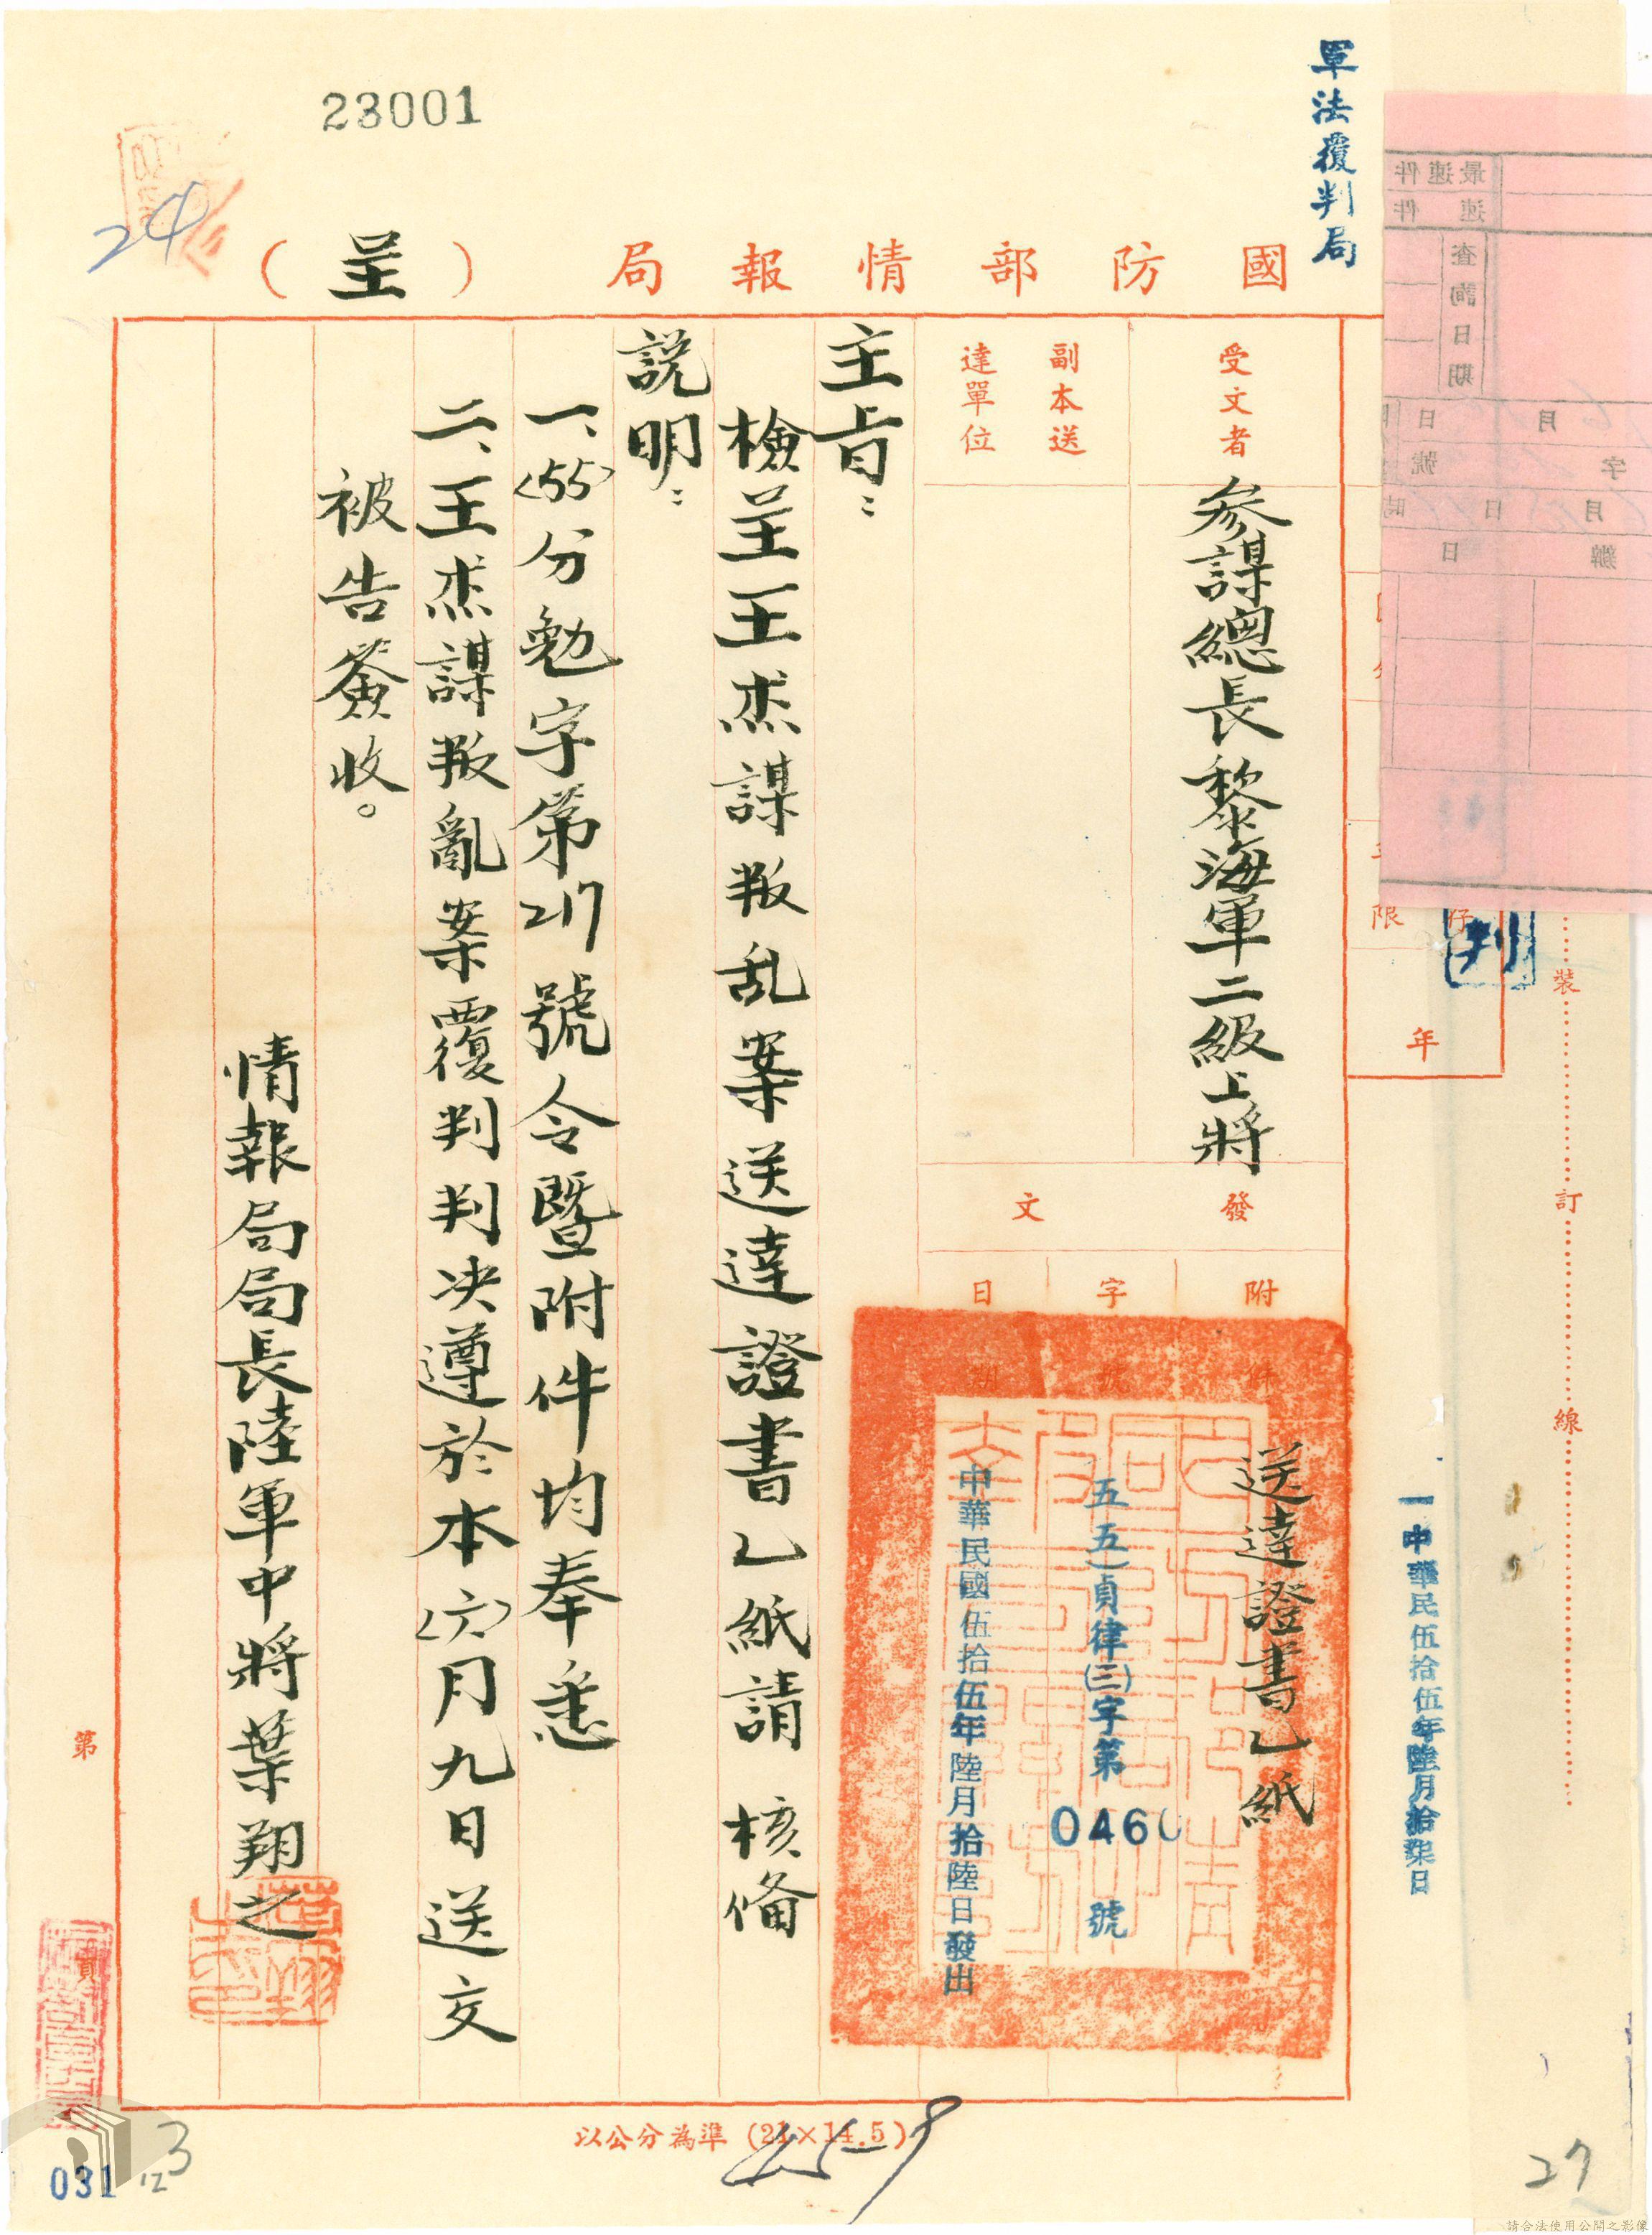 軍法覆判局
23001
24
國防部情報局（呈）
受文者
參謀總長黎海軍二級上將
副本送
達單位
發文
附件
送達證書乙紙
字號
五五）貞律㈢字第046 號
日期
中華民國伍拾伍年陸月拾陸日發出
主旨：
檢呈王杰謀叛乱案送達證書乙紙請 核備
説明：
一、〈55〉分勉字第217號令暨附件均奉悉
二、王杰謀叛亂案覆判判决遵於本〈六〉月九日送交
被告簽收。
情報局局長陸軍中將葉翔之
最速件
速件
查詢日期
月 日
字 號
月 日 時
辦 日
限
存
判
年
裝
訂
線
中華民伍拾伍年陸月拾柒日
第
頁
以公分為準 (21×14.5)
45-9
031
123
27
請合法使用公開之影像